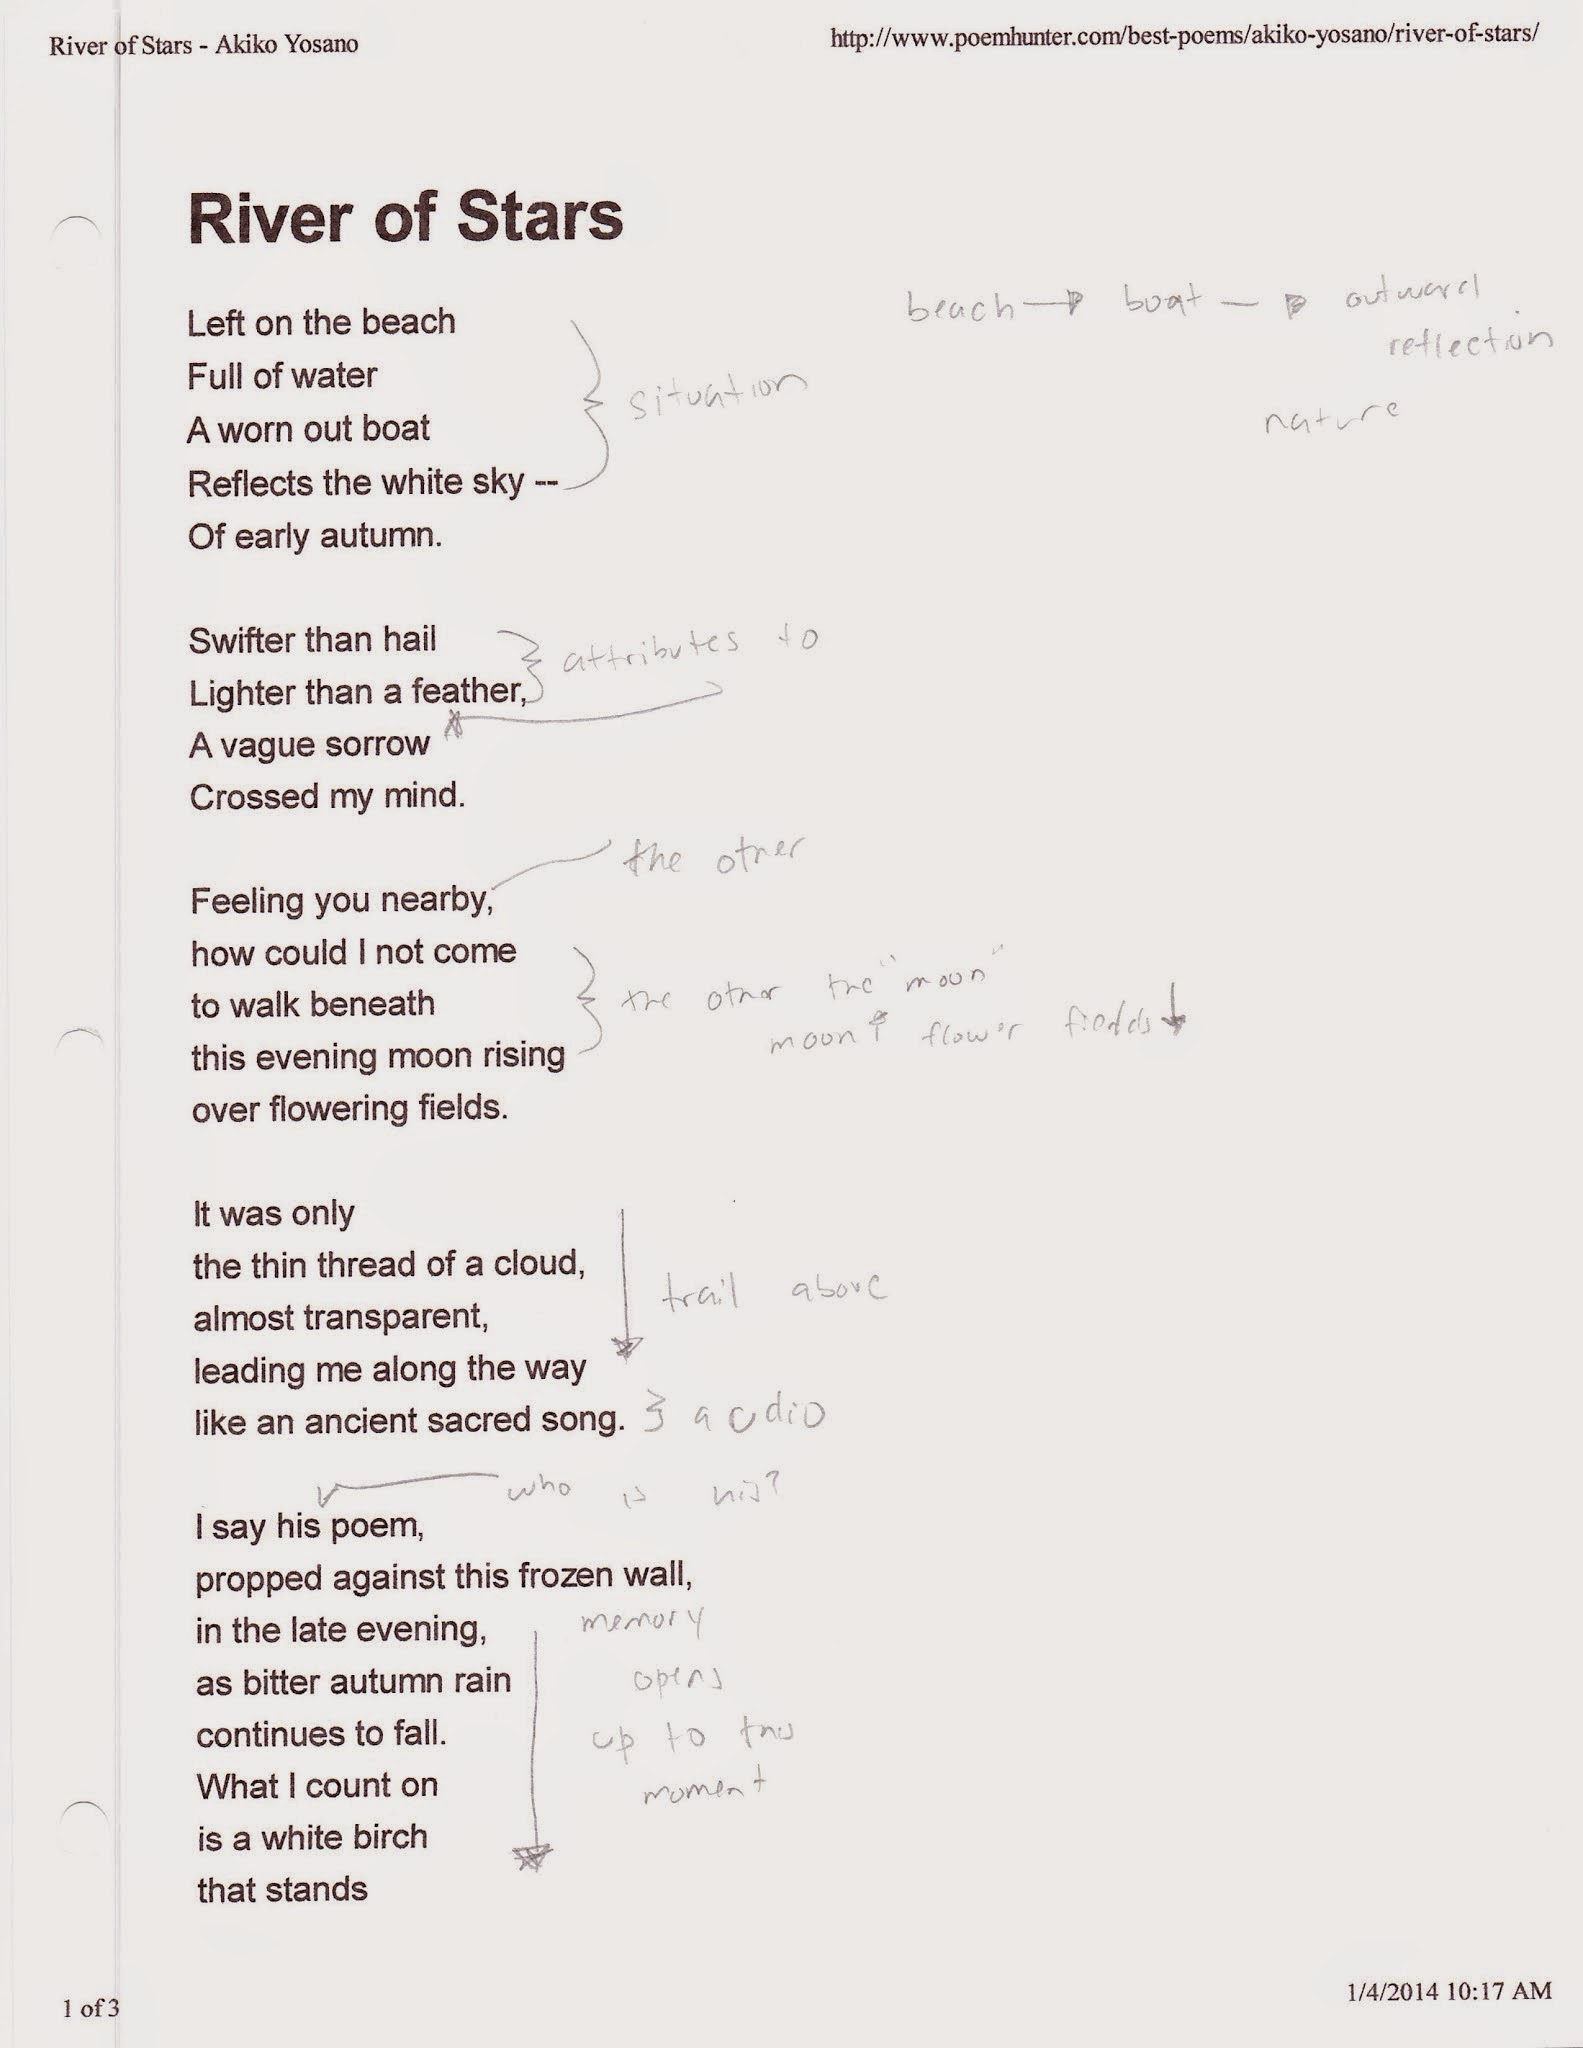 River of Stars - Akiko Yosano
http://www.poemhunter.com/best-poems/akiko-yosano/river-of-stars/
River of Stars
beach → boat → outward
reflection
nature
Left on the beach
Full of water
A worn out boat
situation
Reflects the white sky --
Of early autumn.
Swifter than hail
attributes to
Lighter than a feather,
A vague sorrow
Crossed my mind.
the other
Feeling you nearby,
how could I not come
to walk beneath
the other the "moon"
moon ↑ flower fields ↓
this evening moon rising
over flowering fields.
It was only
the thin thread of a cloud,
trail above
almost transparent,
leading me along the way
like an ancient sacred song.
audio
who is his?
I say his poem,
propped against this frozen wall,
in the late evening,
memory
opens
up to this
moment
as bitter autumn rain
continues to fall.
What I count on
is a white birch
that stands
1 of 3
1/4/2014 10:17 AM